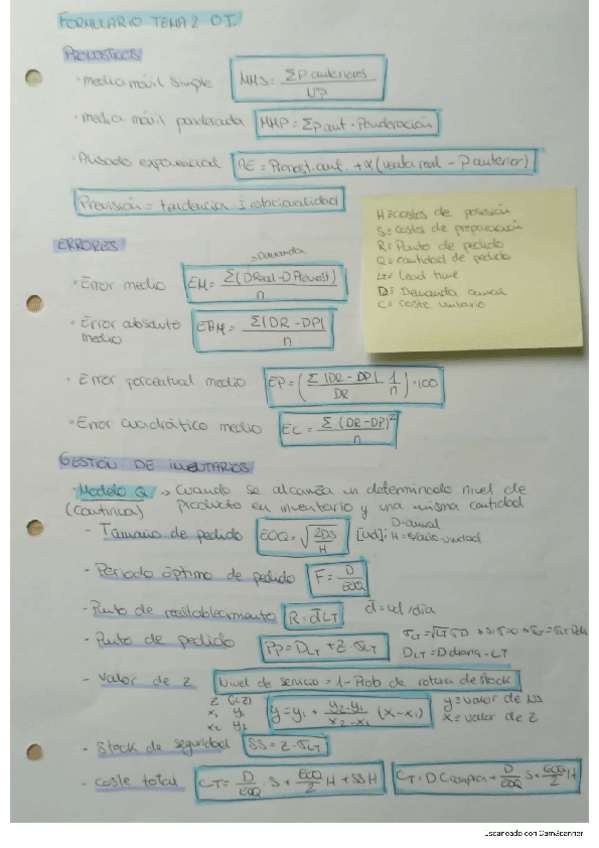 FORMULARIO TEMA 2 OI
PRONOSTICOS
· media móvil simple MMS = ΣP anteriores / Nº P
· media móvil ponderada MMP = ΣP ant · Ponderación
· Alisado exponencial AE = Pronost. ant. + α (venta real - P anterior)
Previsión = tendencia · j estacionalidad
H = costes de posesión
S = costes de preparación
R = Punto de pedido
Q = cantidad de pedido
Lt = Lead time
D = Demanda anual
C = coste unitario
ERRORES
→ Demanda
· Error medio EM = Σ(DReal - DPronost) / n
· Error absoluto medio EAM = Σ|DR - DP| / n
· Error porcentual medio EP = (Σ |DR - DP| / DR · 1/n) · 100
· Error cuadrático medio EC = Σ (DR - DP)² / n
GESTIÓN DE INVENTARIOS
· Modelo Q → Cuando se alcanza un determinado nivel de
(continua) producto en inventario y una misma cantidad
- Tamaño de pedido EOQ = √(2DS / H) [ud]; D = anual
- Período óptimo de pedido F = D / EOQ
- Punto de reestablecimiento R = d̄ LT d̄ = ud/día
- Punto de pedido PP = DLT + Z · σLT
DLT = D diaria · LT
- Valor de z Nivel de servicio = 1 - Prob de rotura de stock
x₁ y₁
x₂ y₂
y = y₁ + (y₂ - y₁) / (x₂ - x₁) (x - x₁)
y = valor de NS
x = valor de Z
- Stock de seguridad SS = Z · σLT
- Coste total CT = D / EOQ · S + EOQ / 2 H + SS H
CT = D Ccompra + D / EOQ S + EOQ / 2 H
Escaneado con CamScanner